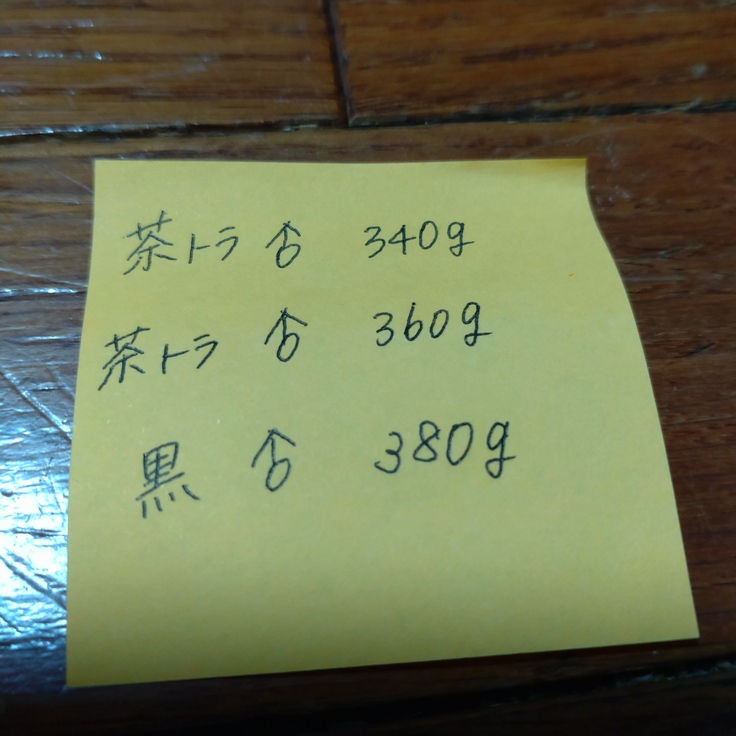 茶トラ ♂ 340g
茶トラ ♂ 360g
黒 ♂ 380g